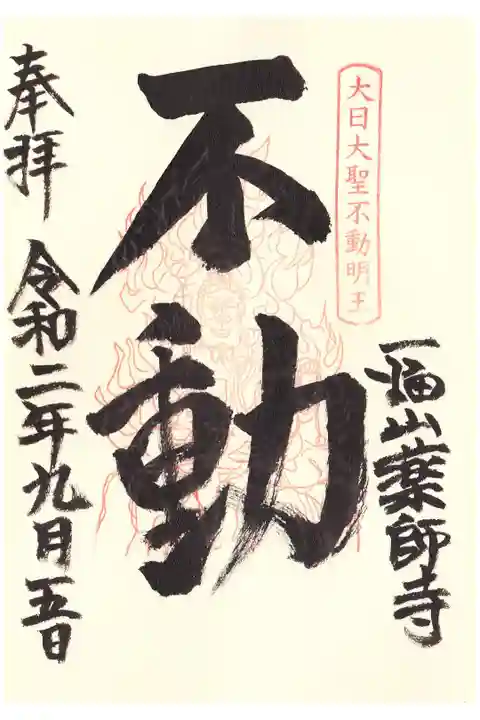 大日大聖不動明王
一畑山薬師寺
不動
奉拝 令和二年九月五日